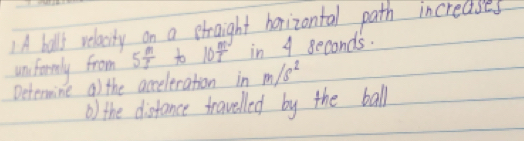 1. A ball's velocity on a straight horizontal path increases
uniformly from 5 m/s to 10 m/s in 4 seconds.
Determine a) the acceleration in m/s²
b) the distance travelled by the ball